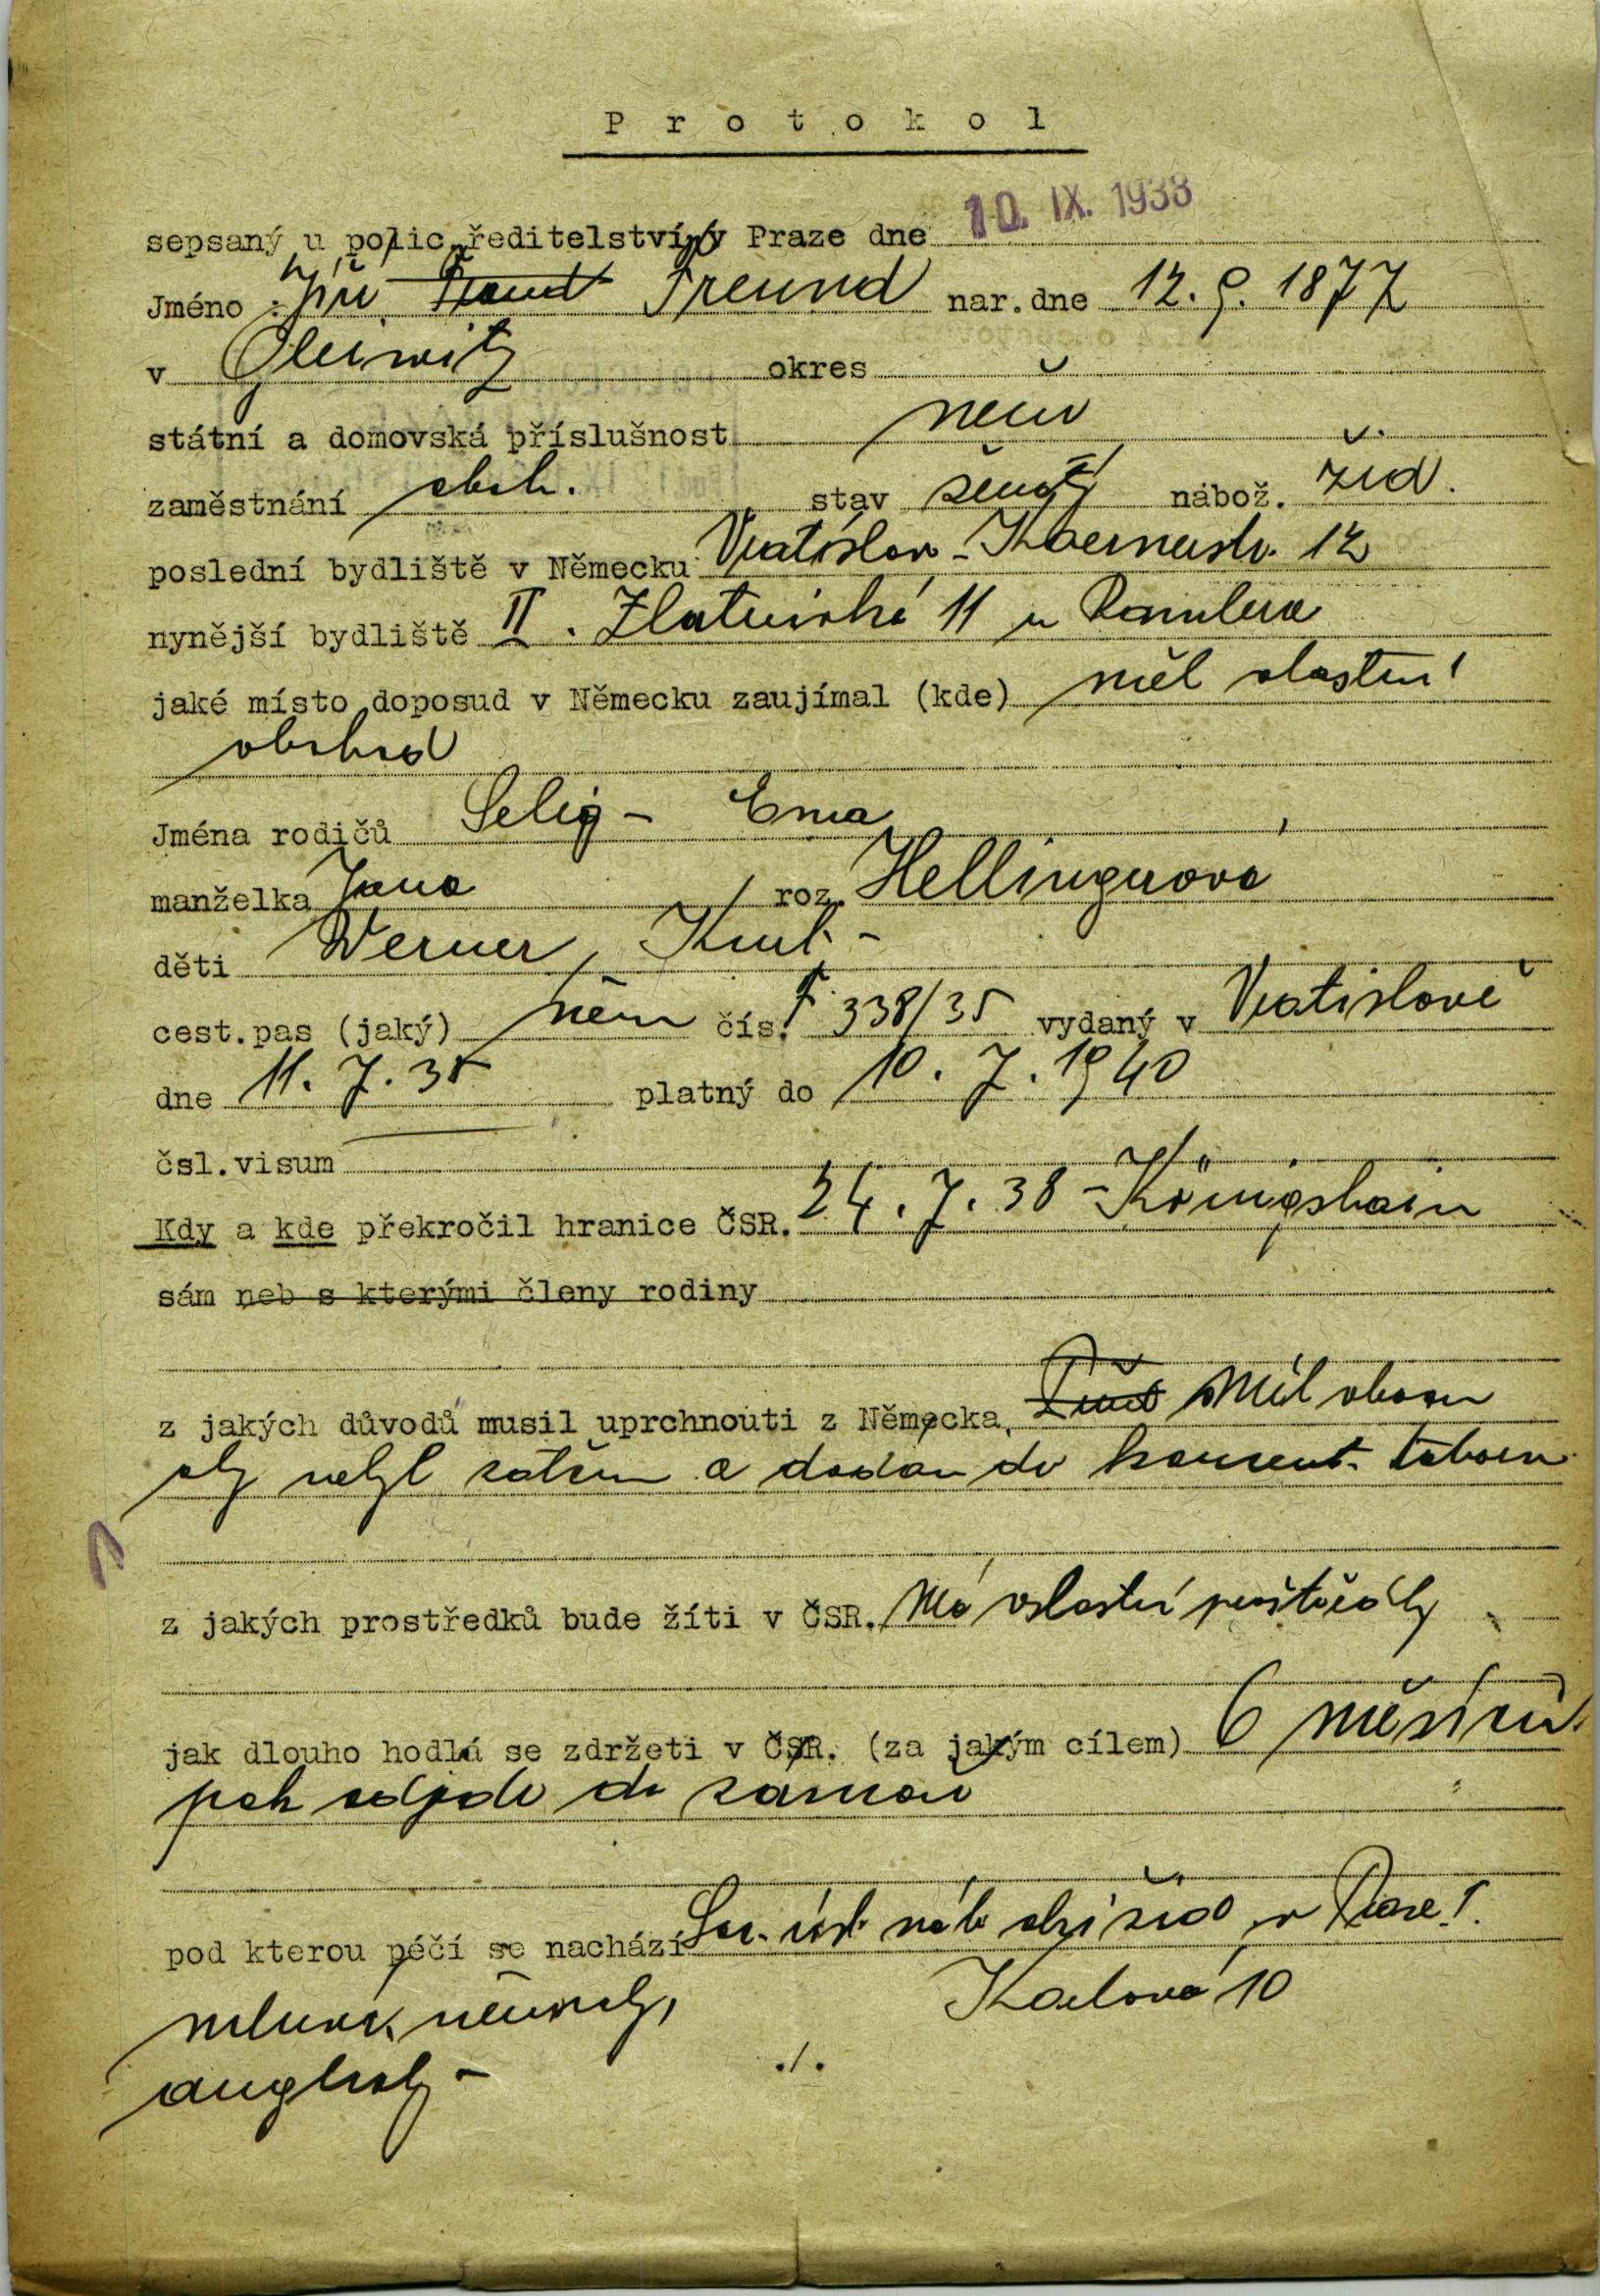 Protokol
sepsaný u polic. ředitelství v Praze dne 10. IX. 1938
Jméno: Jiří Freund nar. dne 12. 9. 1877
v Gleiwitz okres
státní a domovská příslušnost něm
zaměstnání obch. stav ženatý nábož. žid.
poslední bydliště v Německu Vratislav - Koernerstr. 12
nynější bydliště II. Zlatnická 11 u
jaké místo doposud v Německu zaujímal (kde) měl vlastní
obchod
Jména rodičů Selig - Ema
manželka Jana roz. Hellingerová
děti Werner, Kurt -
cest. pas (jaký) něm čís. F 338/35 vydaný v Vratislavě
dne 11. 7. 35 platný do 10. 7. 1940
čsl. visum
Kdy a kde překročil hranice ČSR. 24. 7. 38 - Königshain
sám neb s kterými členy rodiny
z jakých důvodů musil uprchnouti z Německa, Měl obavu
aby nebyl zatčen a dodán do koncent. tabora
z jakých prostředků bude žíti v ČSR. Má vlastní
jak dlouho hodlá se zdržeti v ČSR. (za jakým cílem) 6 měsíců
pak odjede do zámoří
pod kterou péčí se nachází Soc. úst. náb. obcí žid v Praze I.
mluví německy, Karlova 10
anglicky -
./.